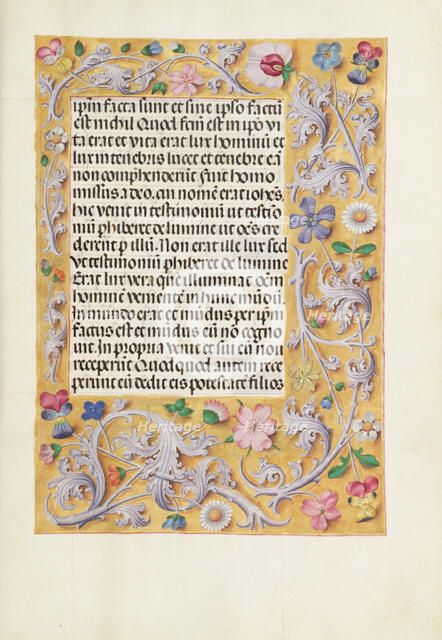 ipm̄ facta sunt et sine ipso factū
est nichil Quod factū est in ip̄o vi
ta erat et vita erat lux hominū et
lux in tenebris lucet et tenebre eā
non comprehenderūt Fuit homo
missus a deo. cui nomē erat ioh̄es.
hic venit in testimoniū ut testim̄o
niū phiberet de lumine ut oēs cre
derent p illū. Non erat ille lux sed
vt testimoniū phiberet de lumine
Erat lux vera que illuminat oēm
hominē veniente in hunc mūdū.
In mundo erat et mūdus per ipm̄
factus est et mūdus eū nō cogno
uit. In propria venit et sui eū nō
receperūt Quotquot autem rece
perunt eū dedit eis potestatē filios
Heritage
Images
Heritage
Images
Heritage
Heritage